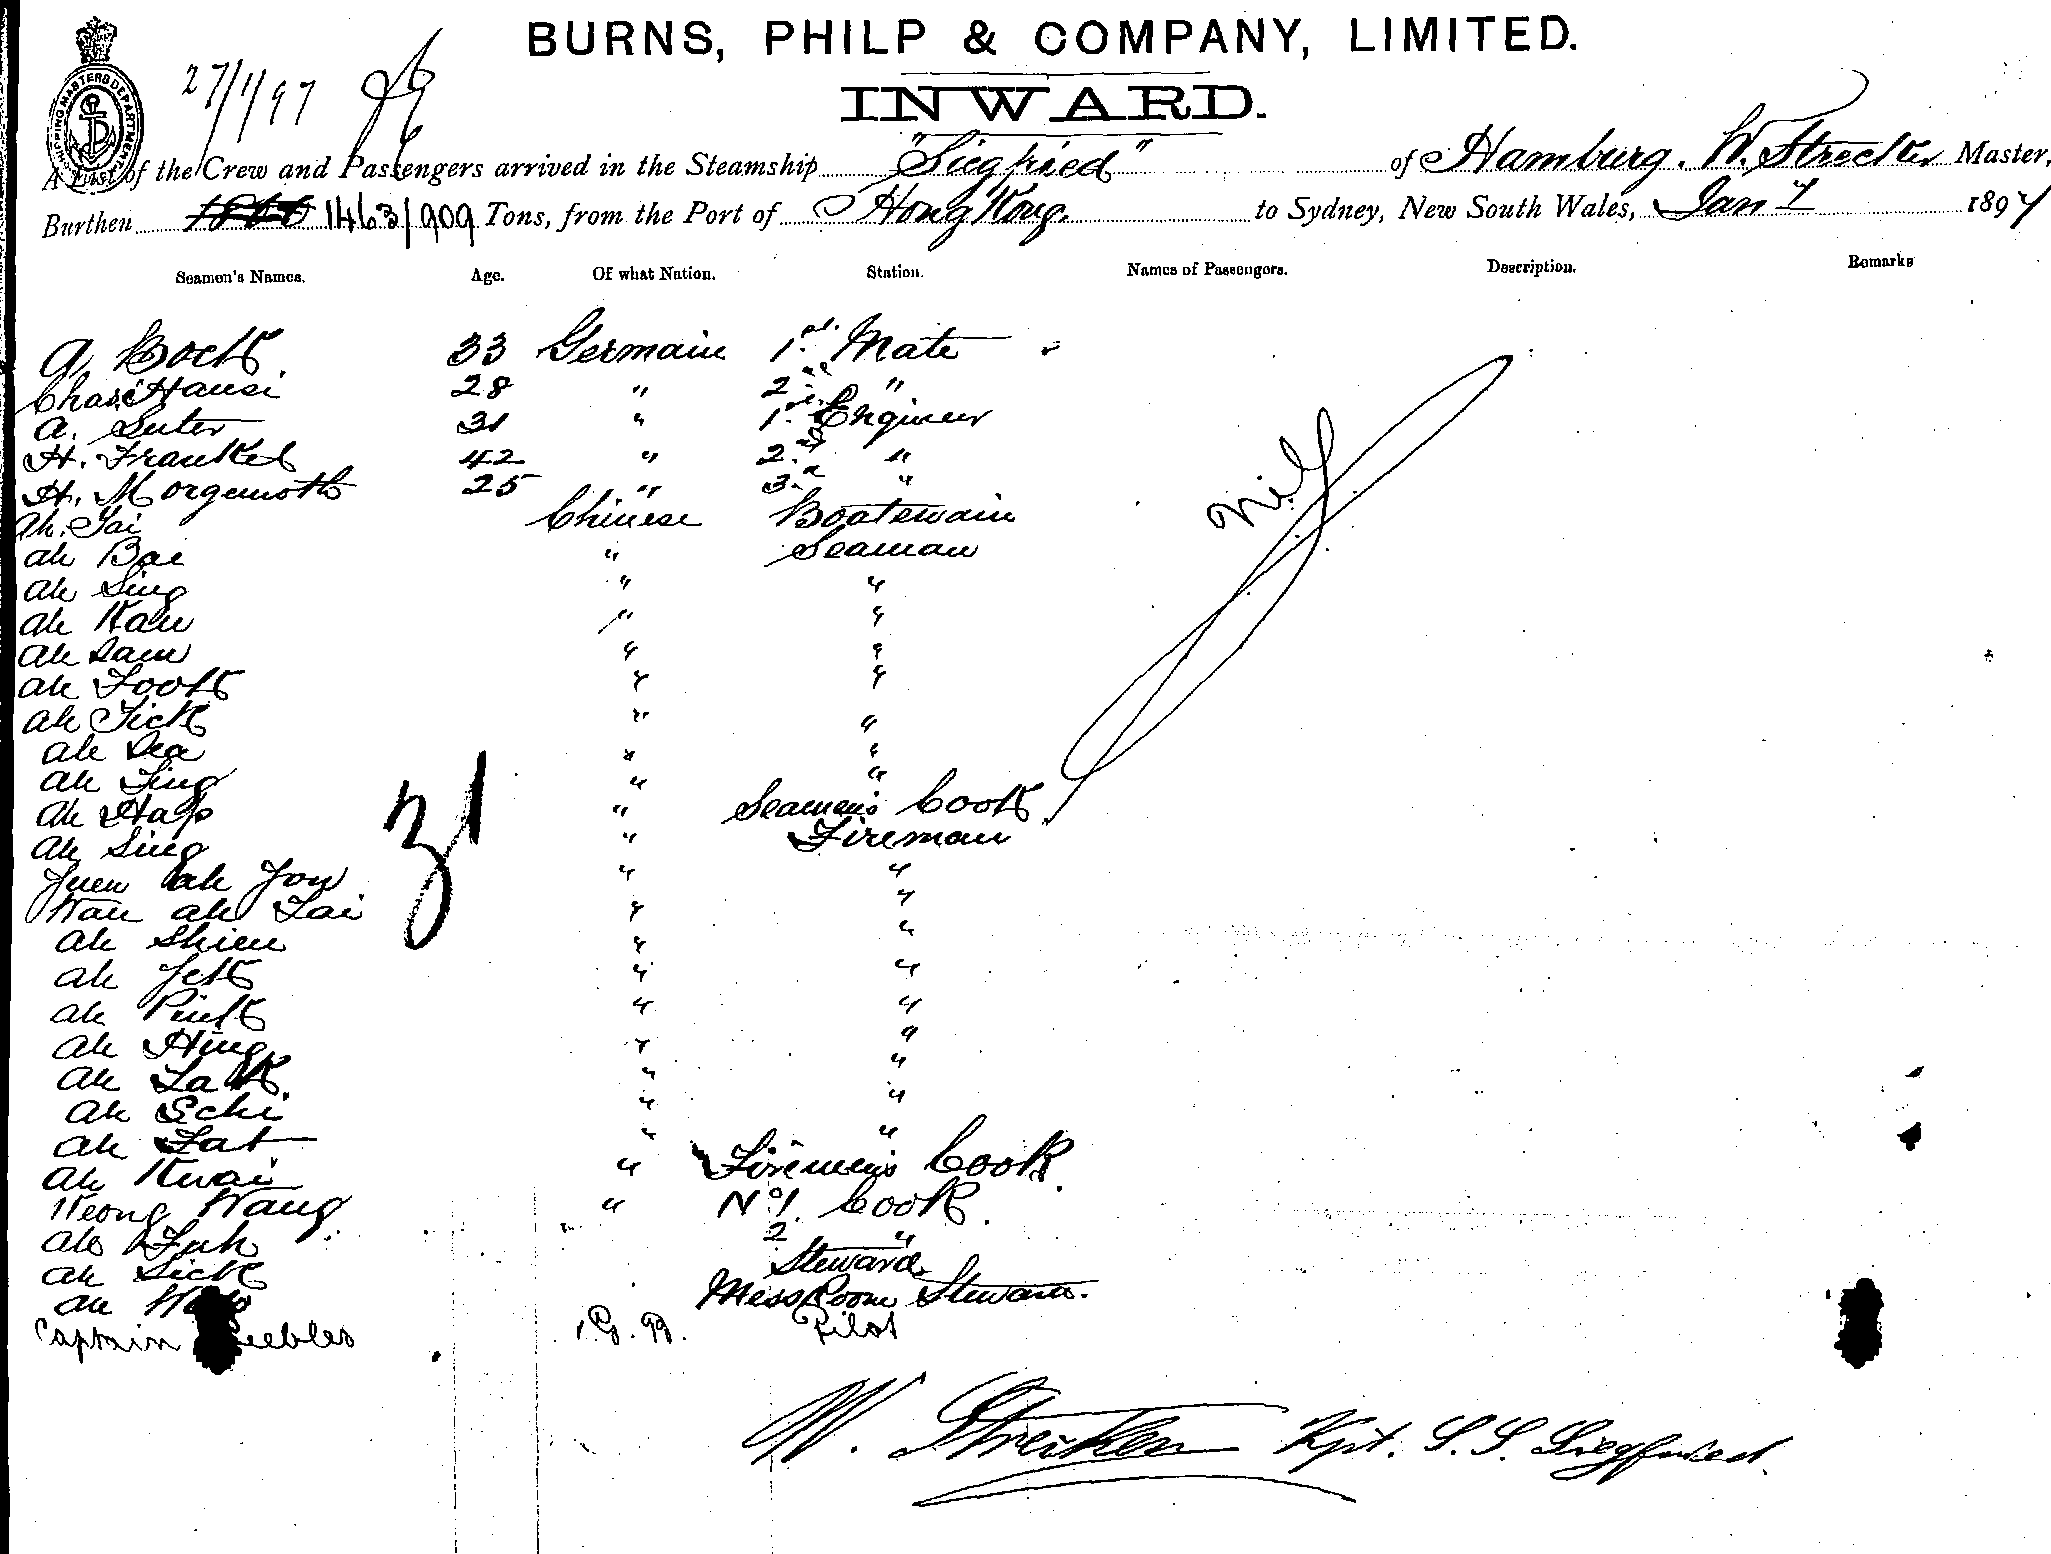 BURNS, PHILP & COMPANY, LIMITED.
INWARD.
27/1/97
SHIPPING MASTERS DEPARTMENT
A List of the Crew and Passengers arrived in the Steamship "Siegfried" of Hamburg. W. Strecker Master,
Burthen 1463/909 Tons, from the Port of Hong Kong. to Sydney, New South Wales, Jan 7 1897
Seamen's Names. Age. Of what Nation. Station. Names of Passengers. Description. Remarks
A. Bock 33 Germain 1st Mate
Chas. Hansi 28 " 2nd "
A. Suter 31 " 1st Engineer
H. Frankel 42 " 2nd "
H. Morgenroth 25 " 3d "
Nil
Ah. Tai Chinese Boatswain
Ah Bai " Seaman
Ah Sing " "
Ah Kau " "
Ah Sam " "
Ah Fook " "
Ah Tick " "
Ah Sea " "
Ah Ting " "
Ah Hap " Seamen's Cook
31
Ah Sing " Fireman
Juen Ah Jou " "
Wau Ah Tai " "
Ah Shieu " "
Ah Jek " "
Ah Pink " "
Ah Hing " "
Ah Lak " "
Ah Schi " "
Ah Fat " "
Ah Kwai " Firemen's Cook
Keong Wang " No 1. Cook
Ah Fuk 2 "
Ah Sick Steward
Ah Mess Room Steward.
Captain Pilot
W. Strecker Kpt. S. S. Siegfried.